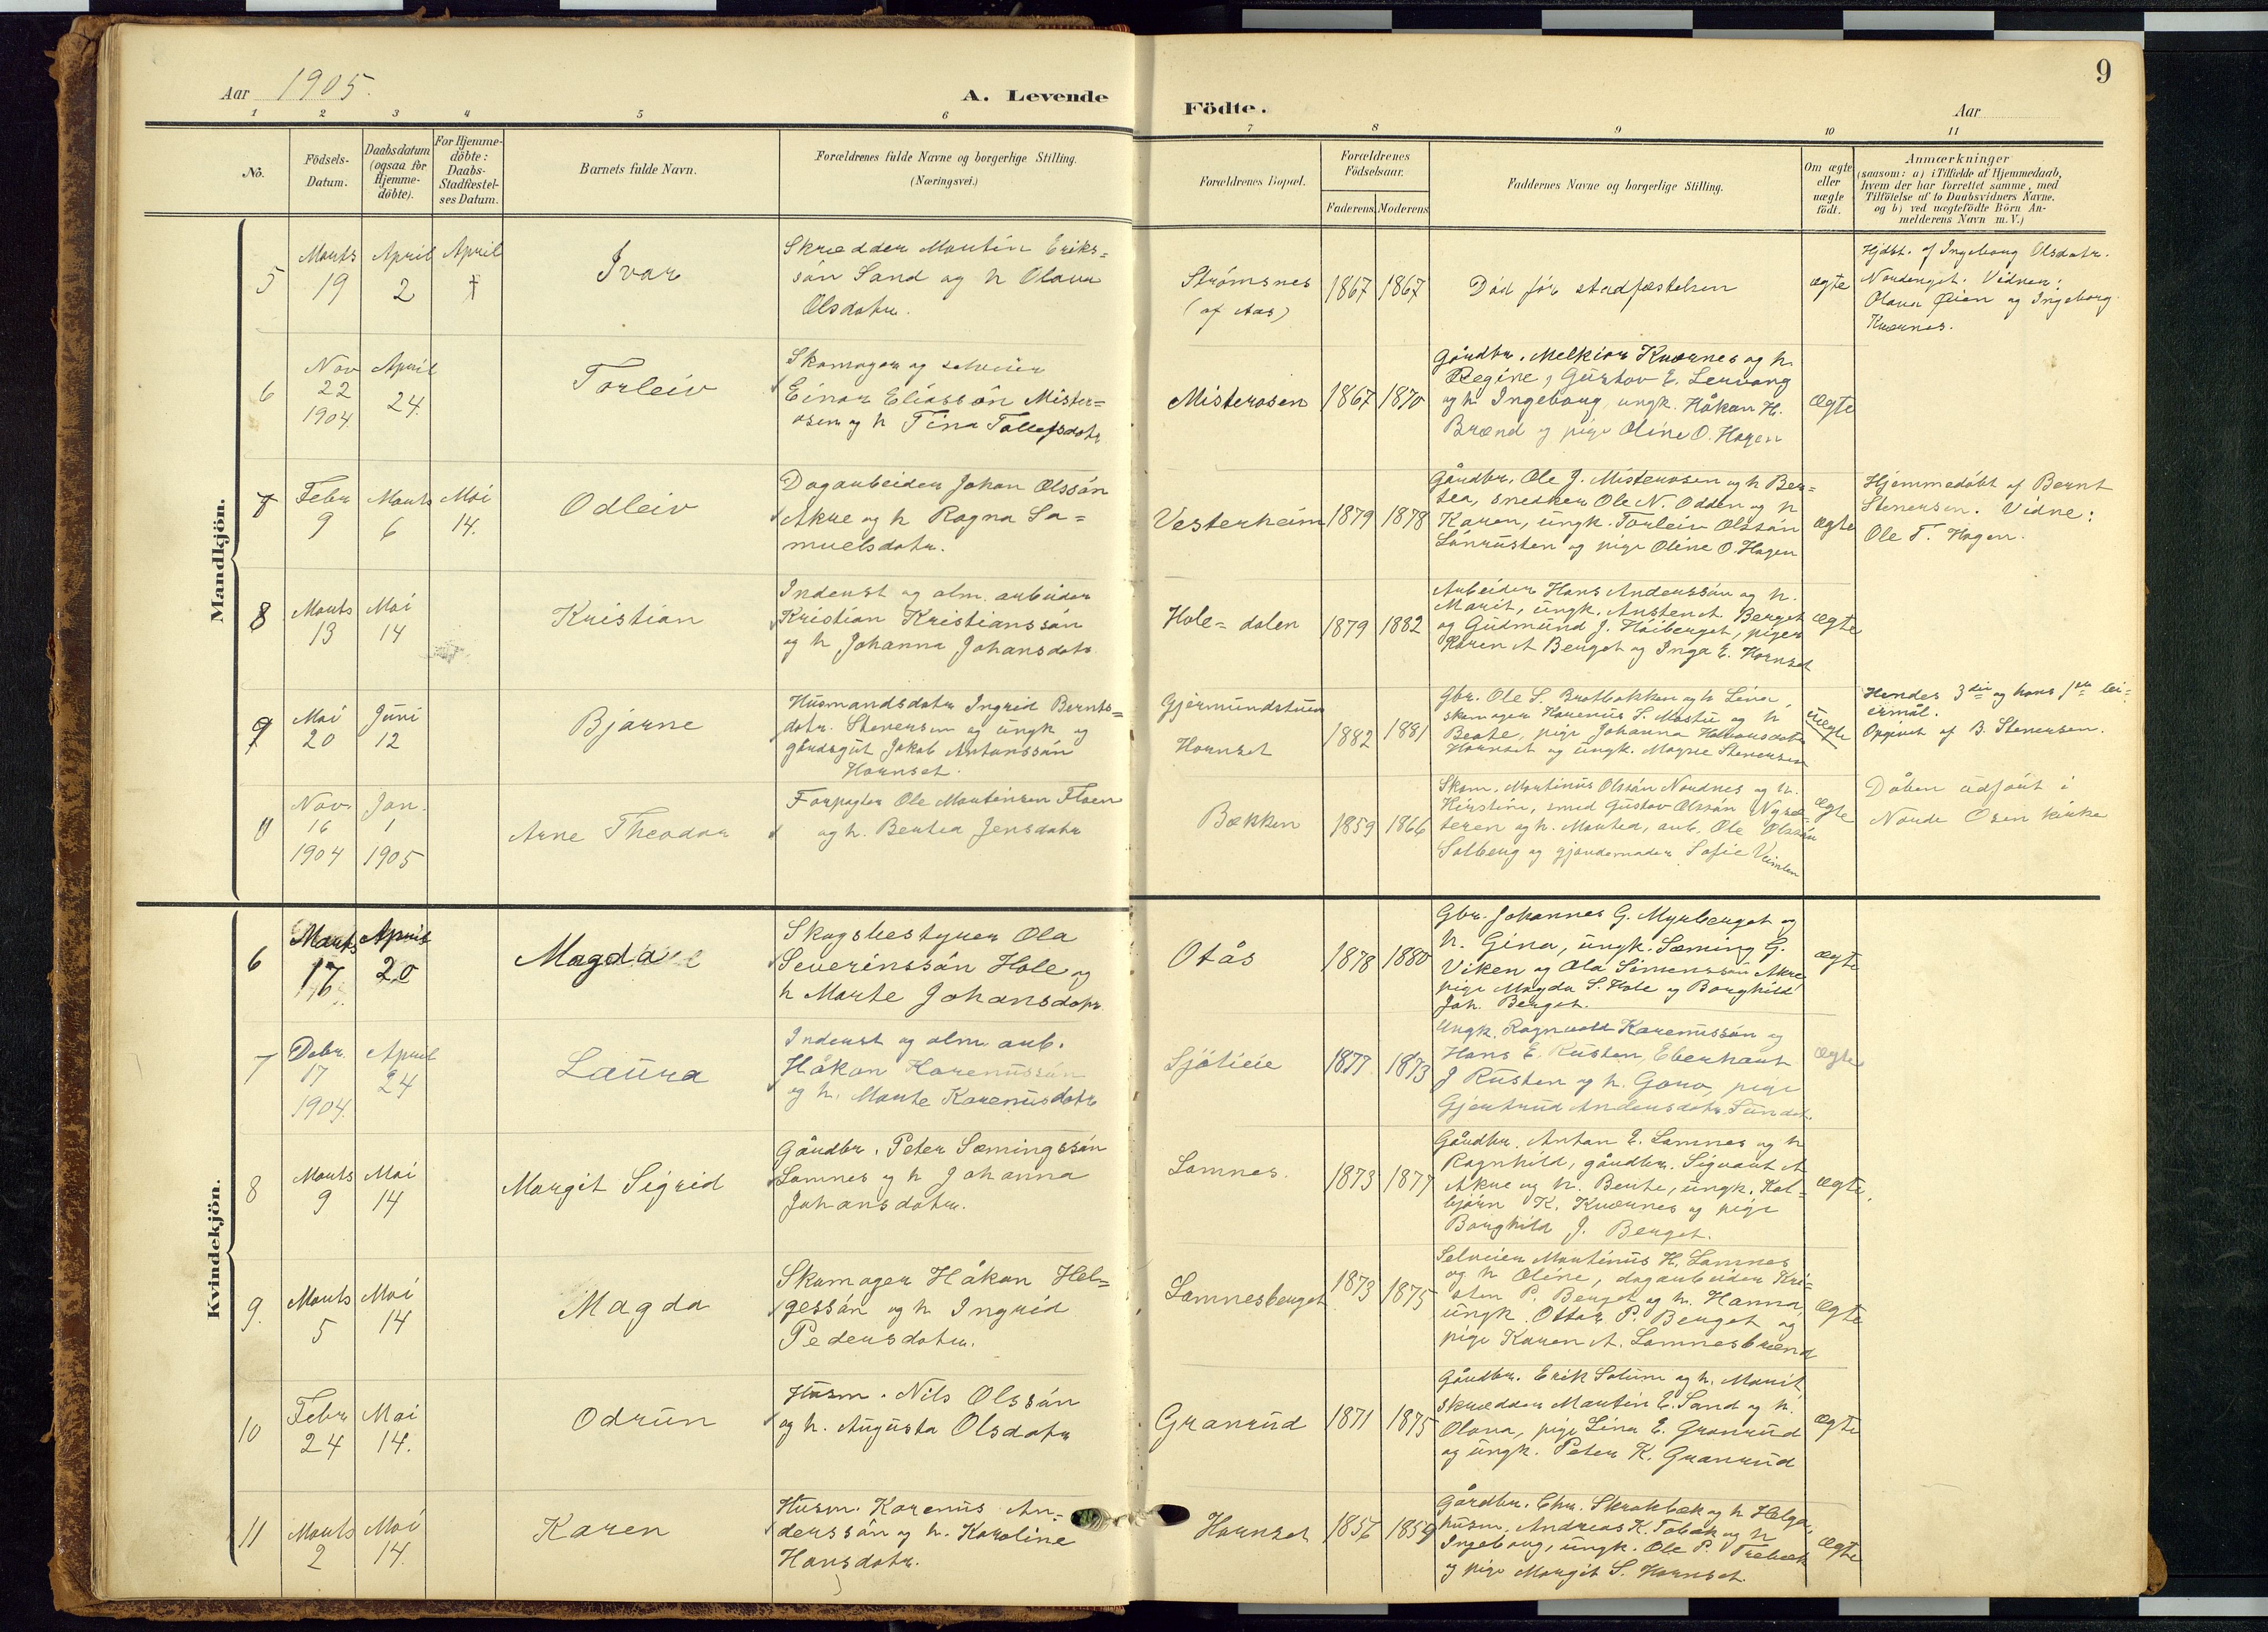 Aar 1905.
A. Levende Födte.
Aar
9
1 2 3 4 5 6 7 8 9 10 11
No.
Födsels-Datum.
Daabsdatum (ogsaa for Hjemme-döbte).
For Hjemme-döbte: Daabs-Stadfæstel-ses Datum.
Barnets fulde Navn.
Forældrenes fulde Navne og borgerlige Stilling.
(Næringsvei.)
Forældrenes Bopæl.
Forældrenes Födselsaar.
Faderens Moderens
Faddernes Navne og borgerlige Stilling.
Om ægte eller uægte födt.
Anmærkninger
(saasom: a) i Tilfælde af Hjemmedaab,
hvem der har forrettet samme, med
Tilföielse af to Daabsvidners Navne,
og b) ved uægtefödte Börn An-
melderens Navn m. V.)
Mandkjön.
5
Marts 19
April 2
April †
Ivar
Skrædder Martin Eriks=
søn Sand og h Olava
Olsdatr.
Strømsnes
(af Aas)
1867 1867
Død før stadfæstelsen
ægte
Hjdbt. af Ingeborg Olsdatr.
Nordenget. Vidner:
Olava Øien og Ingeborg
Kværnes.
6
Nov 22 1904
April 24.
Torleiv
Skomager og selveier
Einar Eliassøn Mister=
osen og h Tina Tollefsdatr
Misterosen
1867 1870
Gårdbr. Melkior Kværnes og h.
Regine, Gustav E. Lervang
og h. Ingeborg, ungk. Håkon H.
Brænd og pige Oline O. Hagen
Ægte
7
Febr 9
Marts 6
Mai 14.
Odleiv
Dagarbeider Johan Olssøn
Akre og h Ragna Sa=
muelsdatr.
Vesterheim
1879 1878
Gårdbr. Ole J. Misterosen og h Ber=
tea, snedker Ole N. Odden og h
Karen, ungk. Torleiv Olssøn
Lønrusten og pige Oline O. Hagen
ægte
Hjemmedøbt af Bernt
Stenersen. Vidne:
Ole T. Hagen.
8
Marts 13
Mai 14
Kristian
Inderst og alm. arbeider
Kristian Kristianssøn
og h Johanna Johansdatr
Hole=dalen
1879 1882
Arbeider Hans Anderssøn og h.
Marit, ungk. Austen A. Berget
og Gudmund J. Høiberget, piger
Karen A Berget og Inga E. Hornset
ægte
9
Mai 20
Juni 12
Bjarne
Husmandsdatr Ingrid Bernts=
datr. Stenersen og ungk og
gårdsgut Jakob Antonssøn
Hornset.
Gjermundstuen
Hornset
1882 1881
Gbr. Ole S. Bratbakken og h Lina,
skomager Karenus S. Mostu og h
Beate, pige Johanna Halvorsdatr
Hornset og ungk. Magne Stenersen
uægte
Hendes 3die og hans 1ste lei=
ermål.
Opgivet af B. Stenersen.
11
Nov. 16 1904
Jan. 1 1905
Arne Theodor
Forpagter Ole Martinsen Floen
og h. Bertea Jensdatr
Bækken
1859 1866
Skom. Martinus Olssøn Nordnes og h.
Kirstine, smed Gustav Olssøn Nysæ=
teren og h. Marthea, arb. Ole Olssøn
Solberg og gjordemoder Sofie
ægte
Dåben udført i
Nordre Osen kirke
Kvindekjön.
6
Marts 17.
April 20
Magda
Skogbestyrer Ola
Severinssøn Hole og
h Marte Johansdatr
Otås
1878 1880
Gbr. Johannes G. Myrberget og
h. Gina, ungk. Sæming G.
Viken og Ola Simenssøn Akre,
pige Magda S. Hole og Borghild
Joh. Berget.
ægte
7
Debr. 17 1904.
April 24
Laura
Inderst og alm arb.
Håkon Karenussøn
og h. Marte Karenusdatr
Sjølieie
1877 1873
Ungk. Ragnvald Karenussøn og
Hans E. Rusten, Eberhart
J Rusten og h. Goro, pige
Gjertrud Andersdatr. Sundet.
ægte
8
Marts 9
Mai 14
Margit Sigrid
Gårdbr. Peter Sæmingssøn
Lomnes og h Johanna
Johansdatr.
Lomnes.
1873 1877
Gårdbr. Anton E. Lomnes og h
Ragnhild, gårdbr. Sigvart A
Akre og h. Berte, ungk. Kol=
bjørn K. Kværnes og pige
Borghild J. Berget.
ægte.
9.
Marts 5
Mai 14
Magda
Skomager Håkon Hel=
gessøn og h Ingrid
Pedersdatr.
Lomnesberget
1873 1875
Selveier Martinus H. Lomnes
og h Oline, dagarbeider Kri=
sten P. Berget og h. Hanna,
ungk. Ottar P. Berget og
pige Karen A. Lomnesbrænd
ægte
10
Febr 24
Mai 14.
Odrun
Husm. Nils Olssøn
og h. Augusta Olsdatr
Granrud
1871 1875
Gårdbr. Erik Solum og h. Marit
skrædder Martin E. Sand og h.
Olava, pige Lina E. Granrud
og ungk. Peter K. Granrud
ægte
11
Marts 2
Mai 14.
Karen
Husm. Karenus An=
derssøn og h. Karoline
Hansdatr.
Hornset
1856 1859
Gårdbr. Chr. Skrakbæk og h Helga,
husm. Andreas K. Tobæk og h
Ingeborg, ungk. Ole P. Trebæk
og pige Margit S. Hornset.
ægte